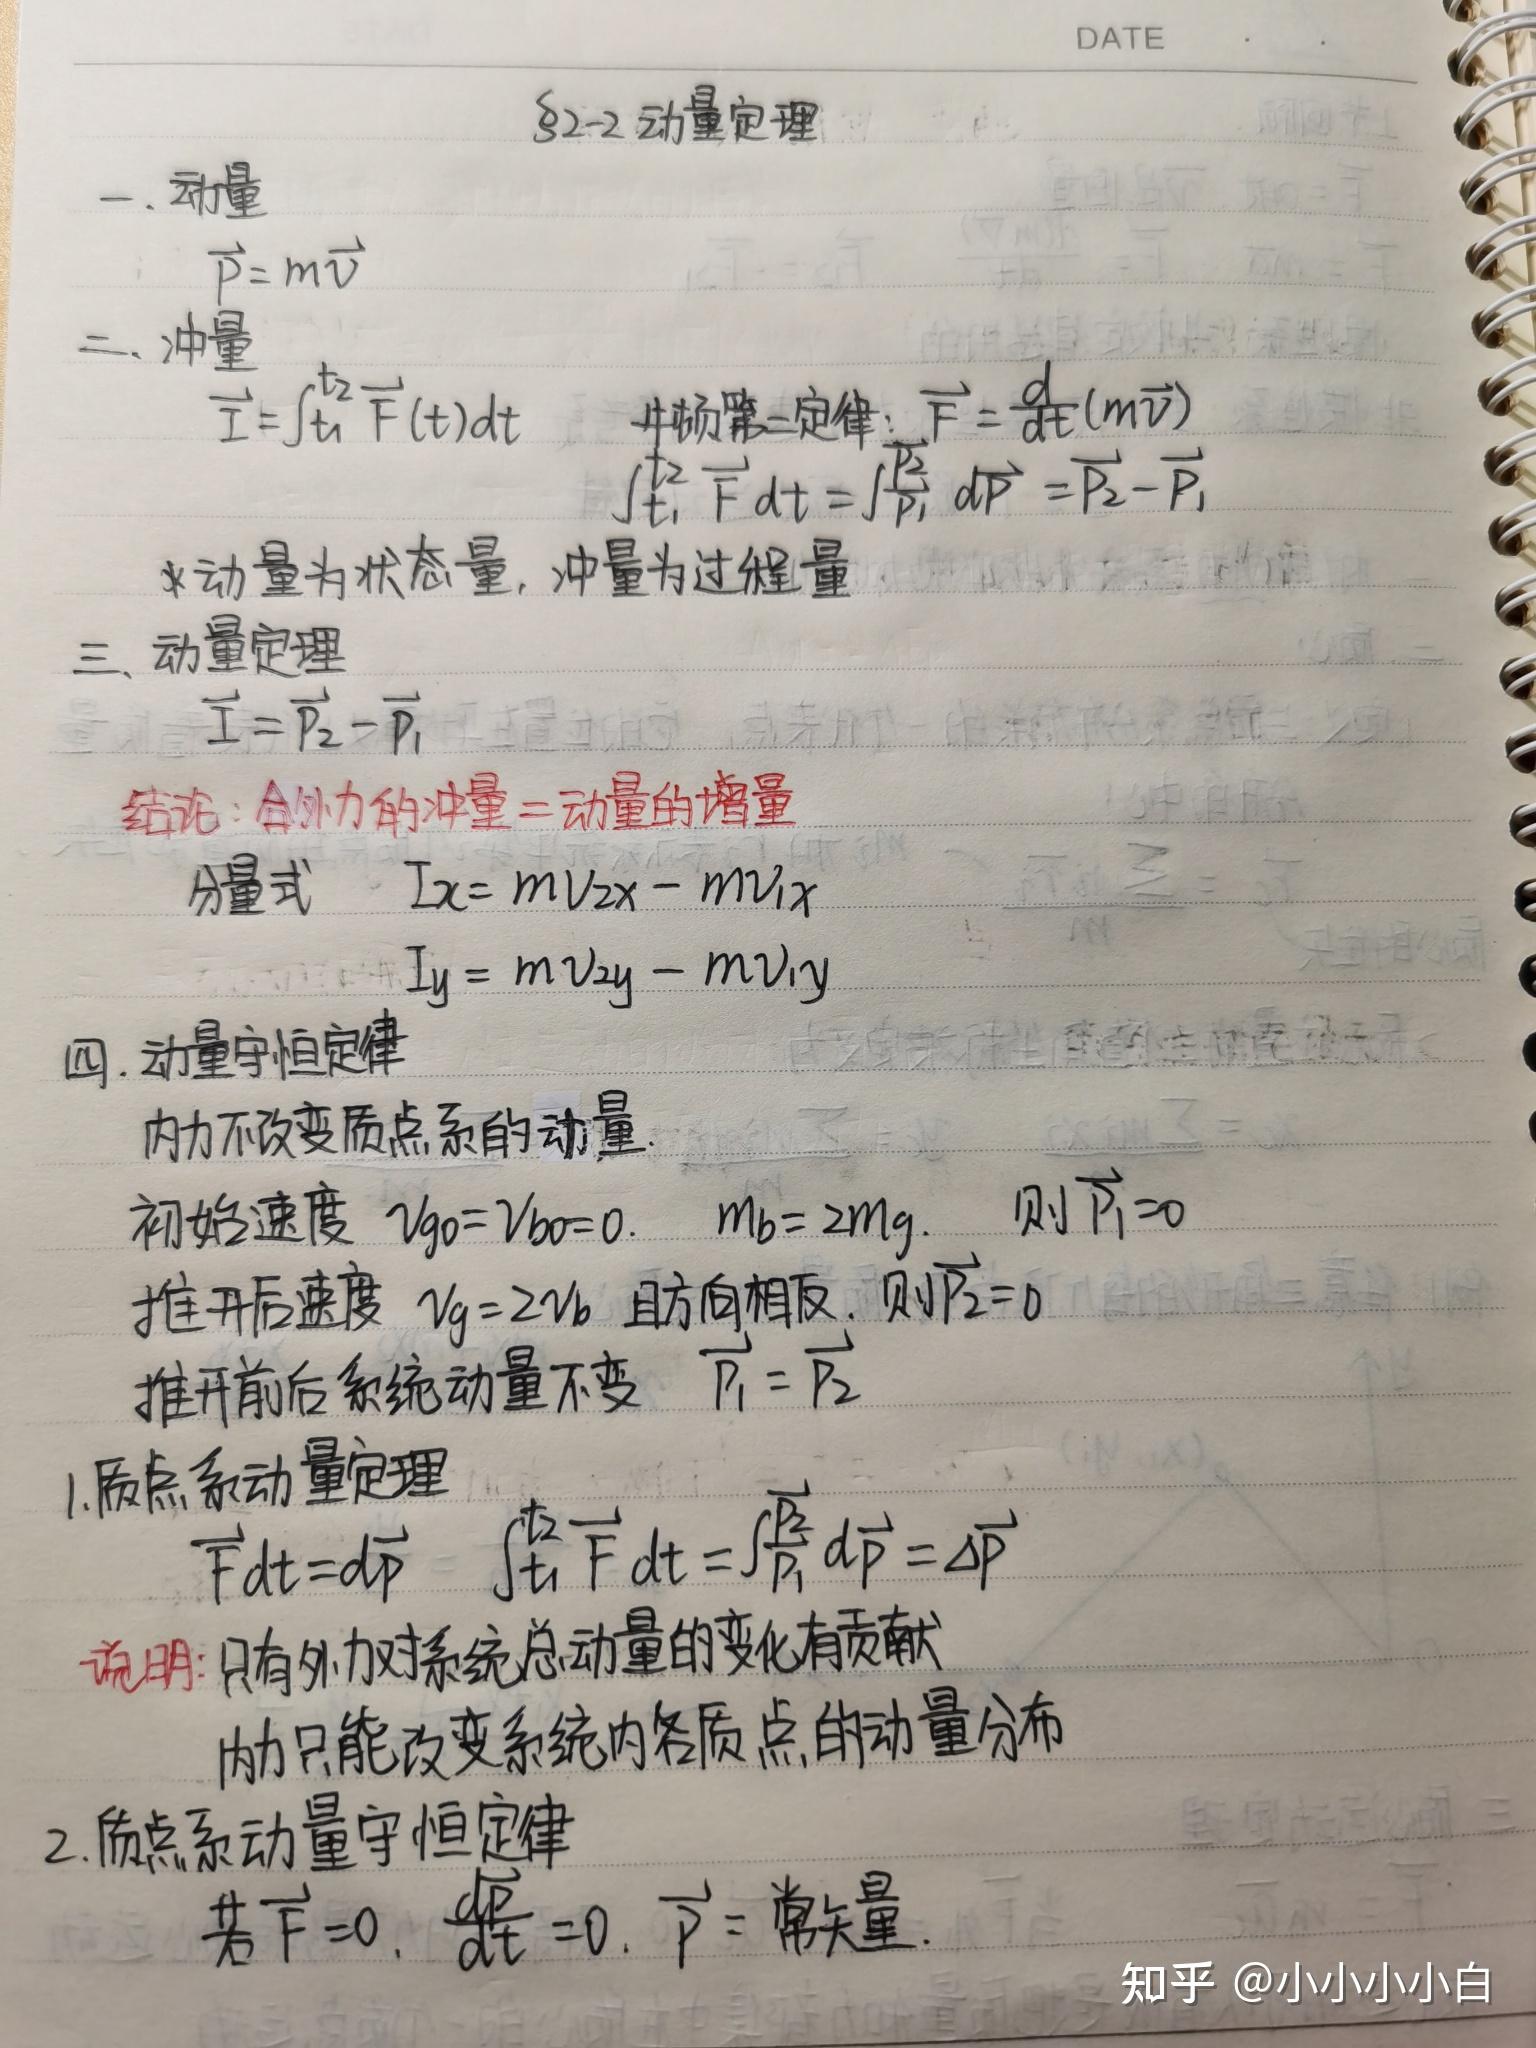 DATE . .
§2-2 动量定理
一. 动量
\vec{P}=m\vec{v}
二、冲量
\vec{I}=∫_{t_1}^{t_2} \vec{F}(t)dt 牛顿第二定律: \vec{F}=\frac{d}{dt}(m\vec{v})
∫_{t_1}^{t_2} \vec{F}dt=∫_{\vec{P_1}}^{\vec{P_2}} d\vec{P}=\vec{P_2}-\vec{P_1}
*动量为状态量, 冲量为过程量
三、动量定理
\vec{I}=\vec{P_2}-\vec{P_1}
结论: 合外力的冲量=动量的增量
分量式 Ix=mv_{2x}-mv_{1x}
Iy=mv_{2y}-mv_{1y}
四. 动量守恒定律
内力不改变质点系的动量.
初始速度 v_{g0}=v_{b0}=0. m_b=2m_g. 则\vec{P_1}=0
推开后速度 v_g=2v_b 且方向相反. 则\vec{P_2}=0
推开前后系统动量不变 \vec{P_1}=\vec{P_2}
1.质点系动量定理
\vec{F}dt=d\vec{P} ∫_{t_1}^{t_2} \vec{F}dt=∫_{\vec{P_1}}^{\vec{P_2}} d\vec{P}=Δ\vec{P}
说明: 只有外力对系统总动量的变化有贡献
内力只能改变系统内各质点的动量分布
2.质点系动量守恒定律
若\vec{F}=0, \frac{d\vec{P}}{dt}=0. \vec{P}=常矢量.
知乎 @小小小小白